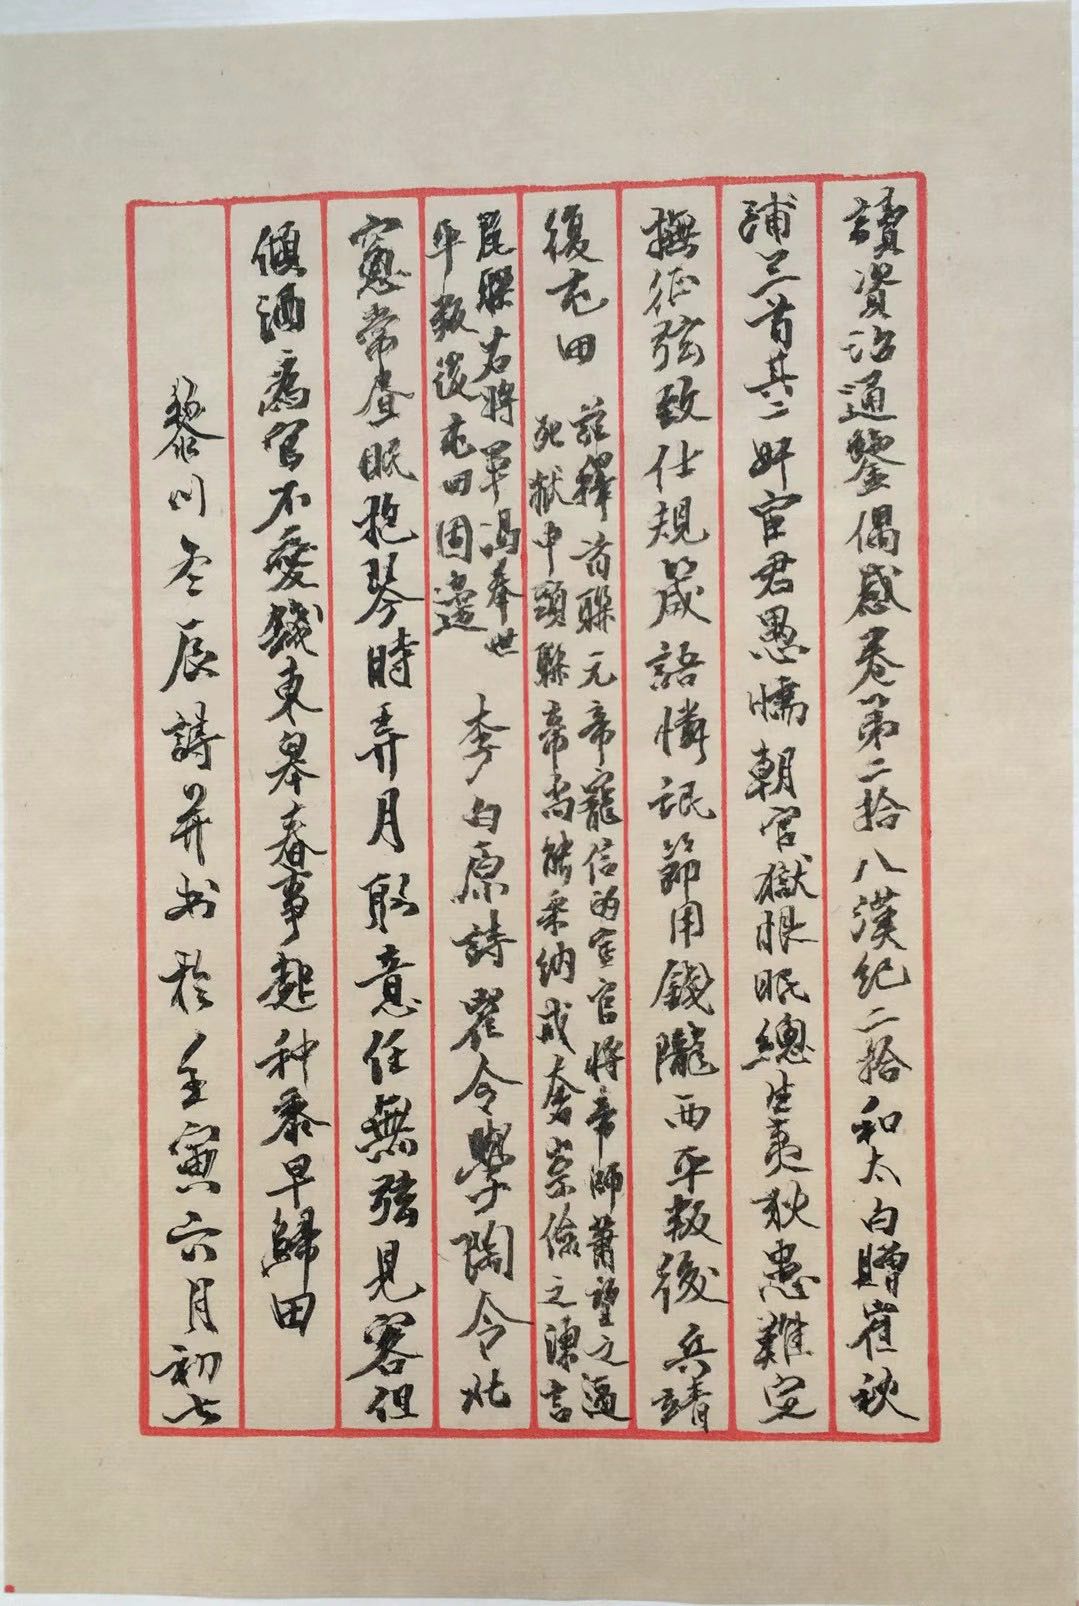 讀資治通鑒偶感卷第二拾八漢紀二拾和太白贈崔秋
浦三首其二奸宦君愚懦朝官獄眼眠總生夷狄患難定
撫征弦致仕規箴語憐氓節用錢隴西平叛後兵靖
復屯田
註釋首聯元帝寵信的宦官將帝師蕭望之逼
死獄中頸聯帝尚能采納戒奢崇儉之諫言
尾聯右將軍馮奉世
平叛後屯田固邊
李白原詩崔令學陶令北
窗常晝眠抱琴時弄月取意任無弦見客但
傾酒為官不愛錢東皋春事起种黍早歸田
黎川冬辰詩并书於壬寅六月初七